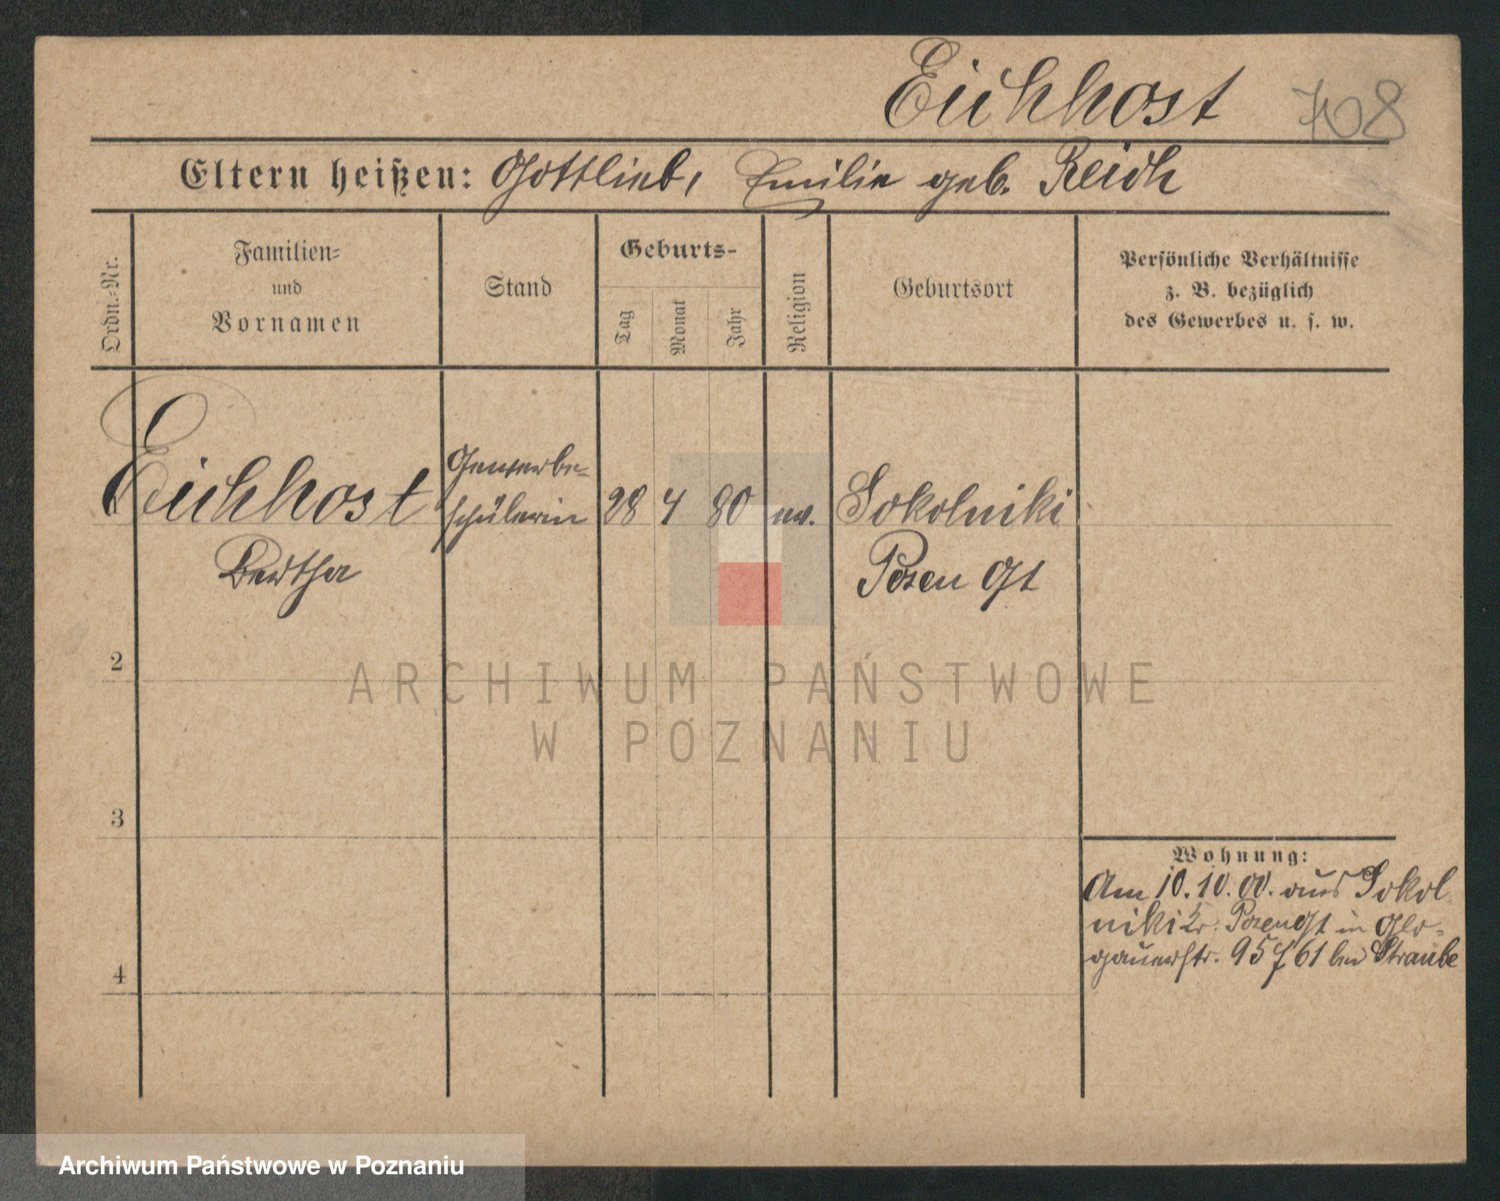 Eichhost 708
Eltern heißen: Gottlieb, Emilie geb. Reich
Ordn.-Nr.
Familien-
und
Vornamen
Stand
Geburts-
Tag
Monat
Jahr
Religion
Geburtsort
Persönliche Verhältnisse
z. B. bezüglich
des Gewerbes u. s. w.
Eichhost
Bertha
Gewerbe-
schülerin
28 4 80 ev.
Sokolniki
Posen Ost
2
3
4
Wohnung:
Am 10.10.00. aus Sokol-
niki Kr. Posen Ost in Glo-
gauerstr. 95 / 61 bei Straube
ARCHIWUM PAŃSTWOWE
W POZNANIU
Archiwum Państwowe w Poznaniu